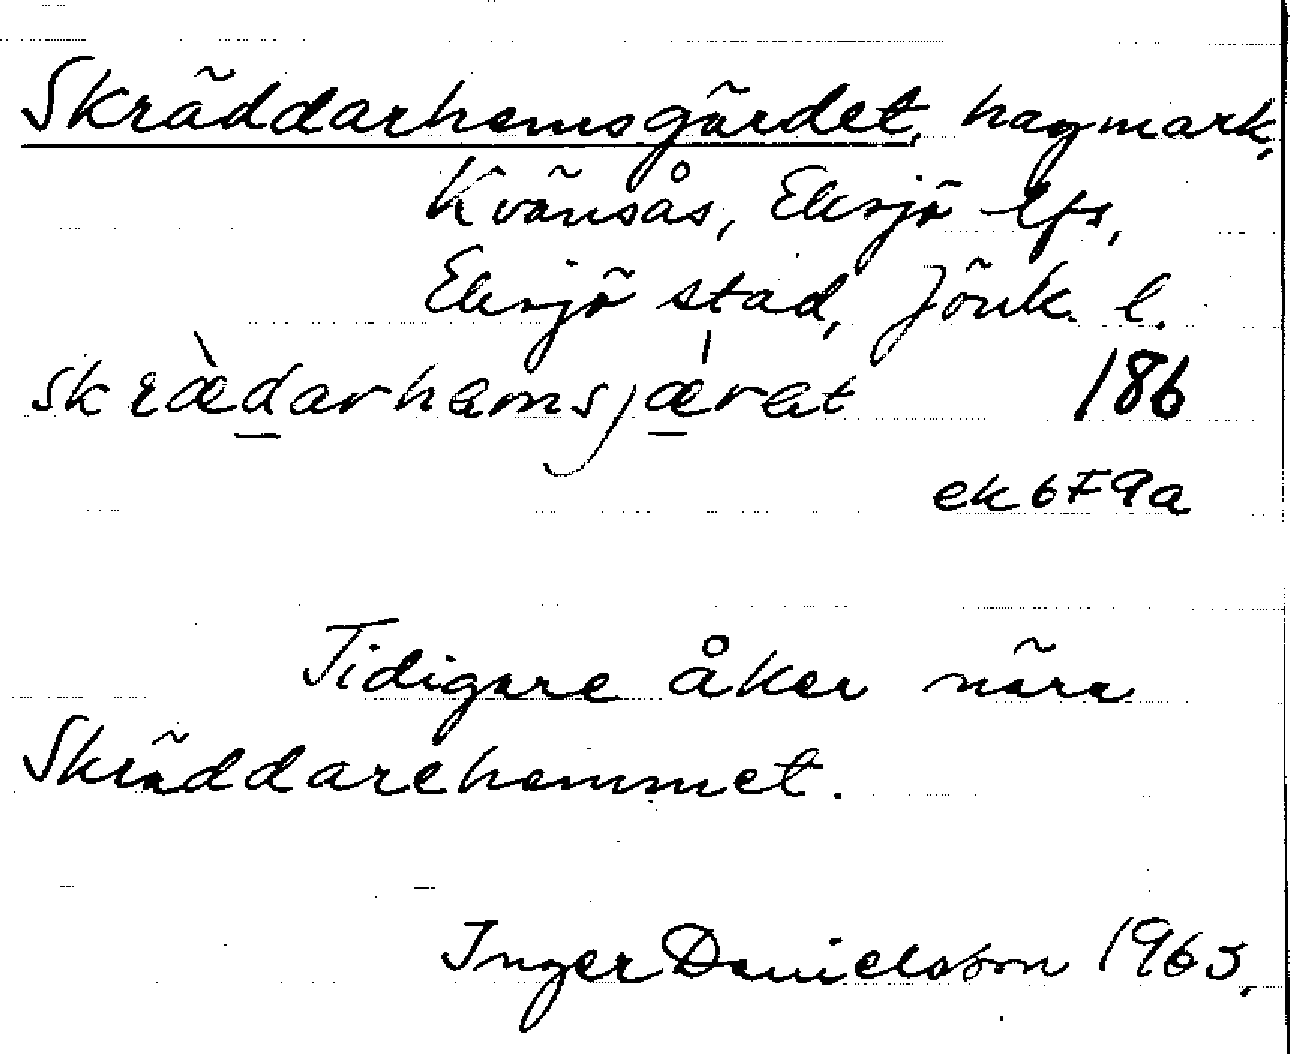 Skräddarhemsgärdet, hagmark,
Kvänsås, Eksjö lfs,
Eksjö stad, Jönk. l.
skræ̀darhemsjæ̍rat 186
ek 6F9a
Tidigare åker nära
Skräddarehemmet.
Inger Danielsson 1965.